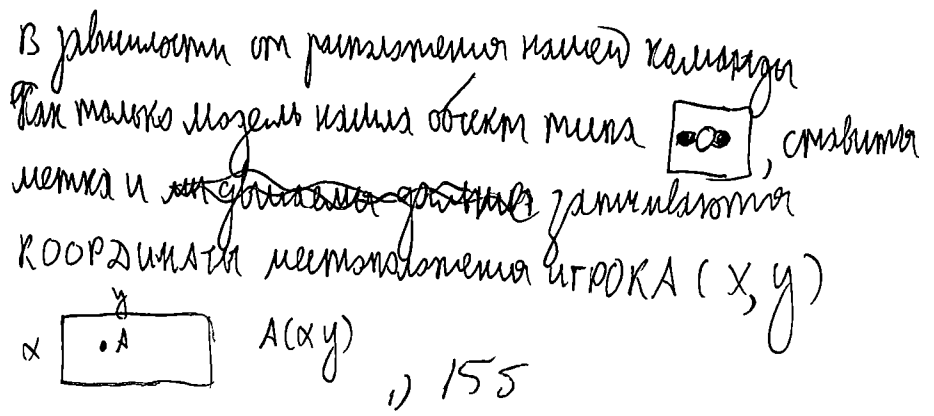 В зависимости от расположения нашей команды
Как только модель нашла объект типа , ставится
метка и записываются
КООРДИНАТЫ местоположения ИГРОКА (X, y)
y
x A A(x y)
,) 155